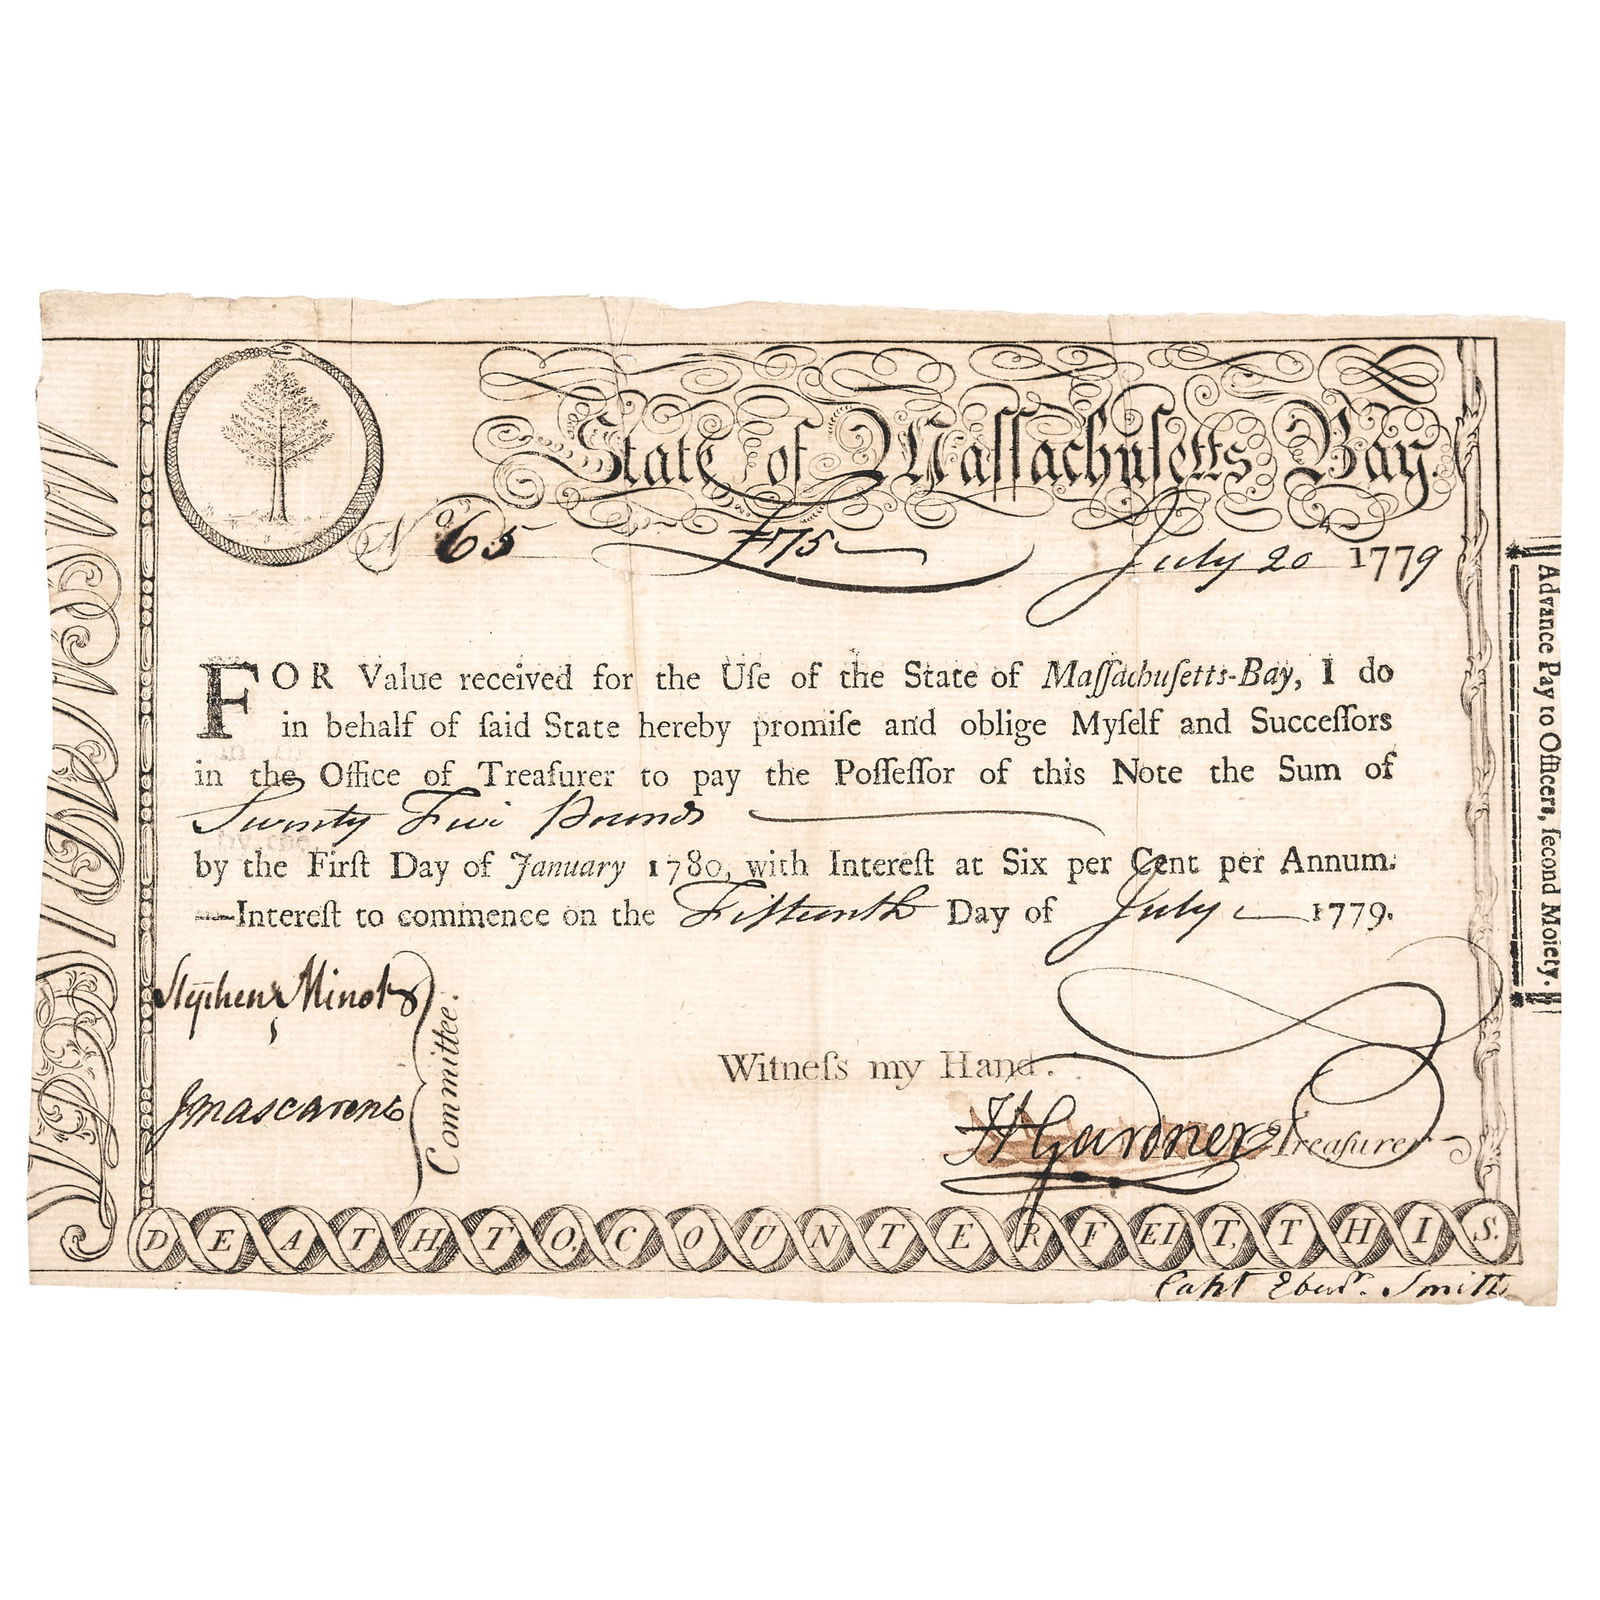 State of Maſſachuſetts Bay.
No. 65 £75 July 20th 1779
FOR Value received for the Uſe of the State of Maſſachuſetts-Bay, I do
in behalf of ſaid State hereby promiſe and oblige Myſelf and Succeſſors
in the Office of Treaſurer to pay the Poſſeſſor of this Note the Sum of
Seventy Five Pounds
by the Firſt Day of January 1780, with Intereſt at Six per Cent per Annum.
—Intereſt to commence on the Fifteenth Day of July 1779.
Stephen Minot
JMascarene
Committee.
Witneſs my Hand.
H Gardner Treaſurer
DEATH TO, COUNTERFEIT, THIS.
Capt Ebenr. Smith
Advance Pay to Officers, ſecond Moiety.